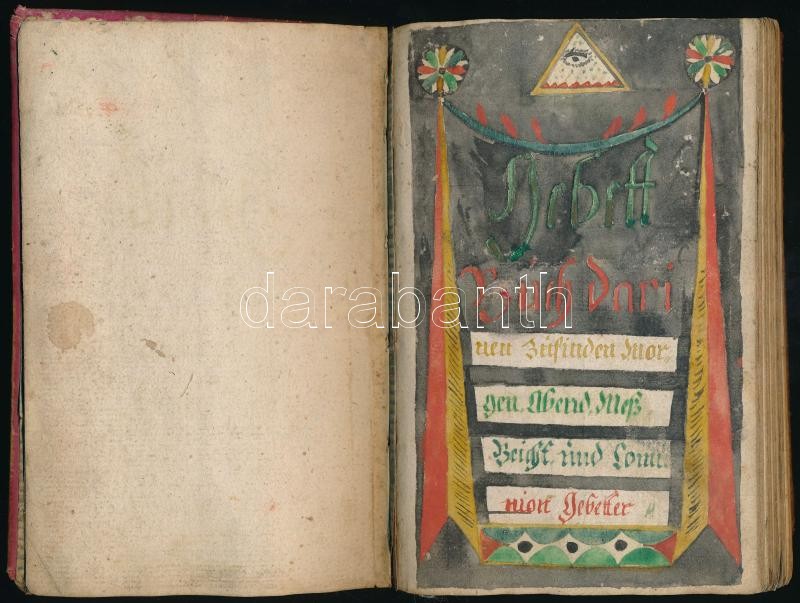 Gebett
Buch dari
darabanth
nen Zufinden Mor
gen. Abend. Meß
Beicht. und Comu
nion Gebetter